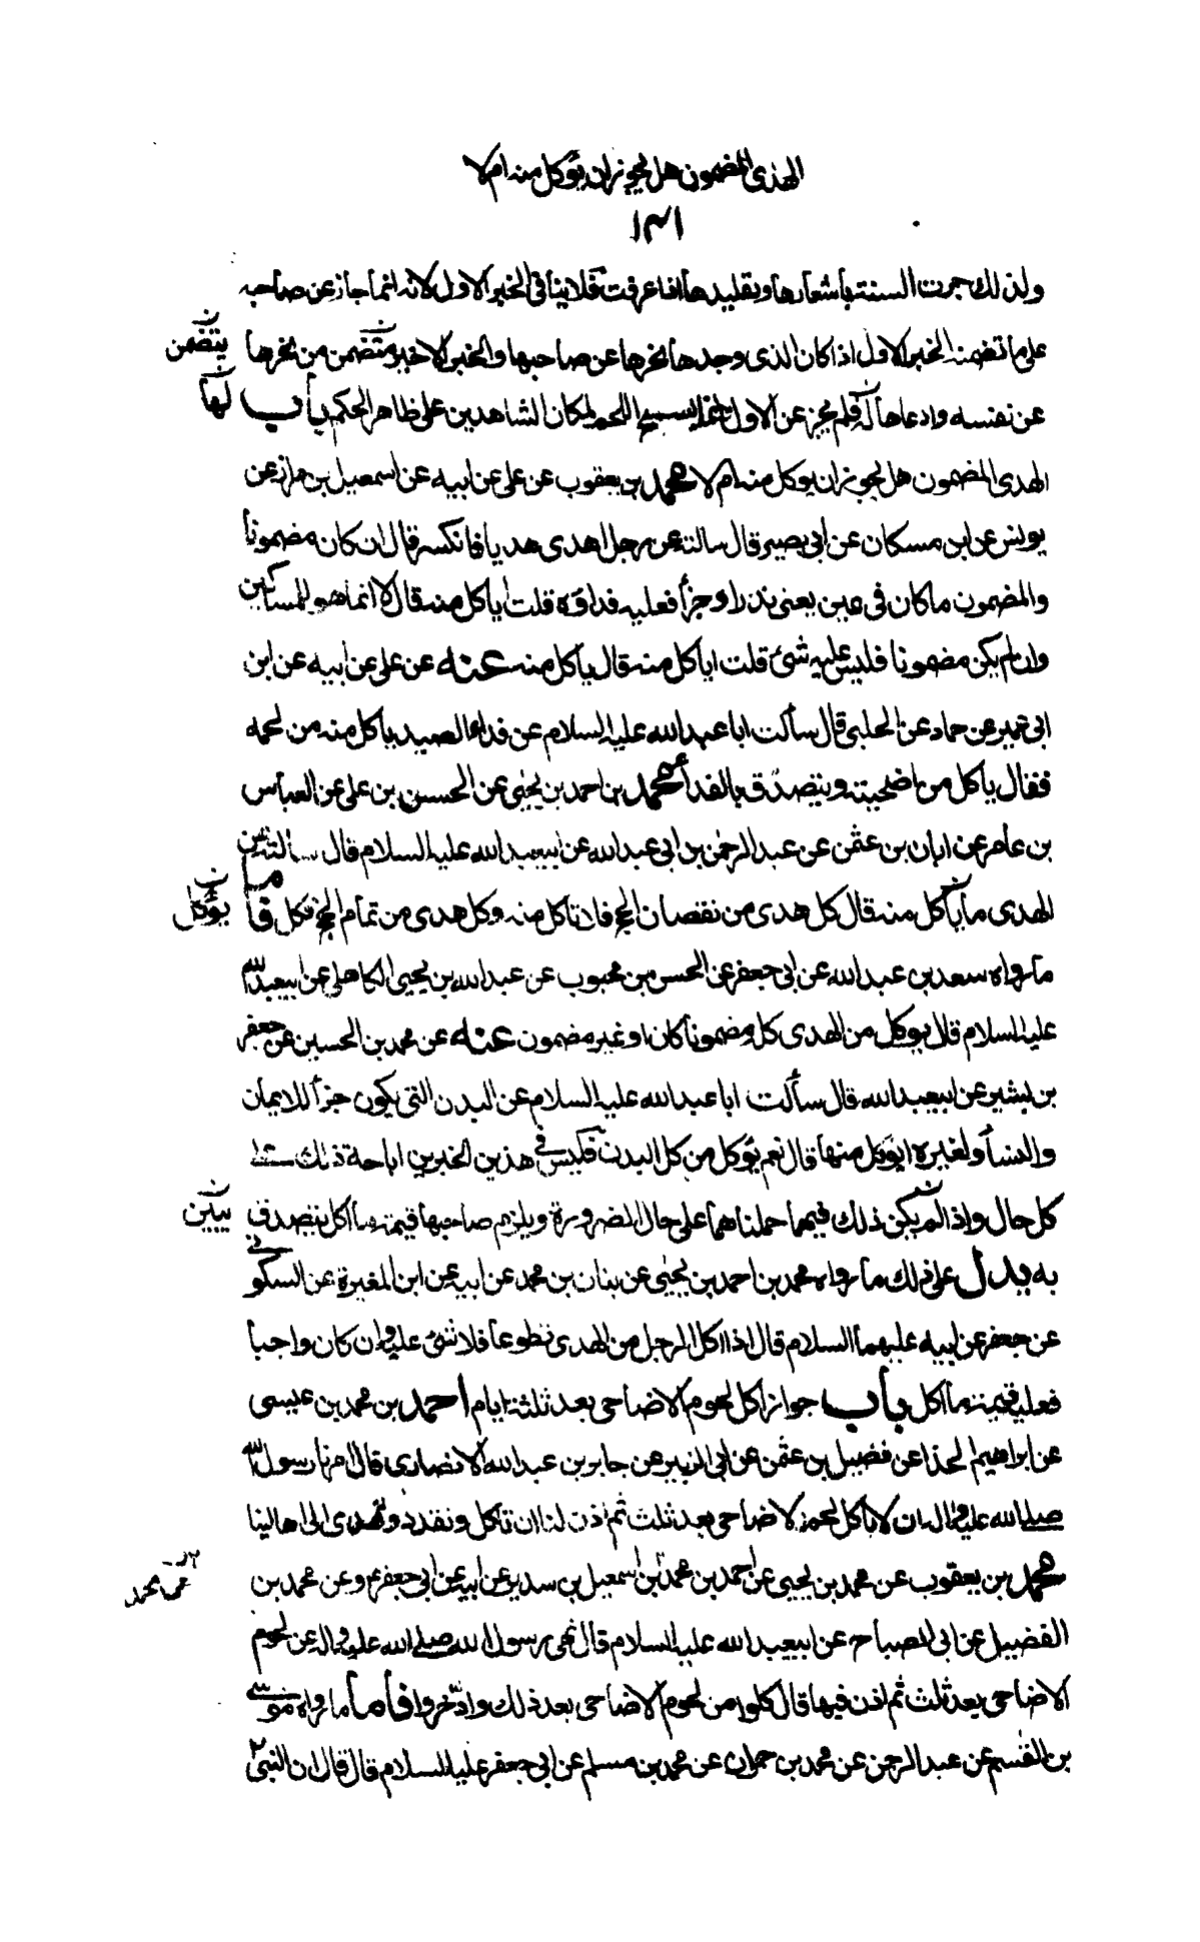 الهدى المضمون هل يجوز ان يؤكل منه ام لا
١٣١
ولذلك جرت السنة باشعارها وتقليدها اذا عرفت فلا ينافى الخبر الاول لانه انما جاز عن صاحبه
على ما تضمنه الخبر الاول اذا كان الذى وجدها نحرها عن صاحبها والخبر الاخير متضمن من نحرها
يتضمن
عن نفسه وادعاها له فلم يجز عن الاول اللحم لمكان الشاهدين على ظاهر الحكم باب
لها
الهدى المضمون هل يجوز ان يوكل منه ام لا محمد بن يعقوب عن على عن ابيه عن اسمعيل بن مرار عن
يونس عن ابن مسكان عن ابى بصير قال سالته عن رجل اهدى هديا فانكسر قال ان كان مضمونا
والمضمون ما كان فى يمين يعنى نذرا وجزأ فعليه فداؤه قلت أياكل منه قال لا انما هو للمساكين
وان لم يكن مضمونا فليس عليه شئ قلت اياكل منه قال يأكل منه عنه عن على عن ابيه عن ابن
ابى عمير عن حماد عن الحلبى قال سألت ابا عبد الله عليه السلام عن فداء الصيد ياكل منه من لحمه
فقال ياكل من اضحيته ويتصدق بالفدأ محمد بن احمد بن يحيى عن الحسن بن على عن العباس
بن عامر عن ابان بن عثمن عن عبد الرحمن بن ابى عبد الله عن ابيعبد الله عليه السلام قال سالته عن
الهدى ما يأكل منه قال كل هدى من نقصان الحج فلا تاكل منه وكل هدى من تمام الحج فكل فأما
يؤكل
ما رواه سعد بن عبد الله عن ابى جعفر عن الحسن بن محبوب عن عبد الله بن يحيى الكاهلى عن ابيعبد الله
عليه السلام قال يوكل من الهدى كله مضمونا كان او غير مضمون عنه عن محمد بن الحسين عن جعفر
بن بشير عن ابيعبد الله قال سألت ابا عبد الله عليه السلام عن البدن التى يكون جزأ للايمان
والنسأ ولغيره ايؤكل منها قال نعم يؤكل من كل البدن فليس فى هذين الخبرين اباحة ذلك على
كل حال واذا لم يكن ذلك فيهما حملناهما على حال الضرورة ويلزم صاحبها قيمة ما اكل يتصدق
يبين
به يدل على ذلك ما رواه محمد بن احمد بن يحيى عن بنان بن محمد عن ابيه عن ابن المغيرة عن السكونى
عن جعفر عن ابيه عليهما السلام قال اذا اكل الرجل من الهدى تطوعا فلا شئ عليه وان كان واجبا
فعليه قيمة ما اكل باب جواز اكل لحوم الاضاحى بعد ثلثة ايام احمد بن محمد بن عيسى
عن ابراهيم الحذا عن فضيل بن عثمن عن ابى الزبير عن جابر بن عبد الله الانصارى قال امرنا رسول الله
صلى الله عليه واله ان لا ناكل لحم الاضاحى بعد ثلث ثم اذن لنا ان ناكل ونقدد ونهدى الى اهالينا
محمد بن يعقوب عن محمد بن يحيى عن احمد بن محمد بن اسمعيل بن سدير عن ابيه عن ابى جعفر ع وعن محمد بن
عن محمد
الفضيل عن ابى الصباح عن ابيعبد الله عليه السلام قال نهى رسول الله صلى الله عليه واله عن لحوم
الاضاحى بعد ثلث ثم اذن فيها قال كلوا من لحوم الاضاحى بعد ذلك وادخروا فأما ما رواه موسى
بن القسم عن عبد الرحمن عن محمد بن حمران عن محمد بن مسلم عن ابى جعفر عليه السلام قال قال ان النبى